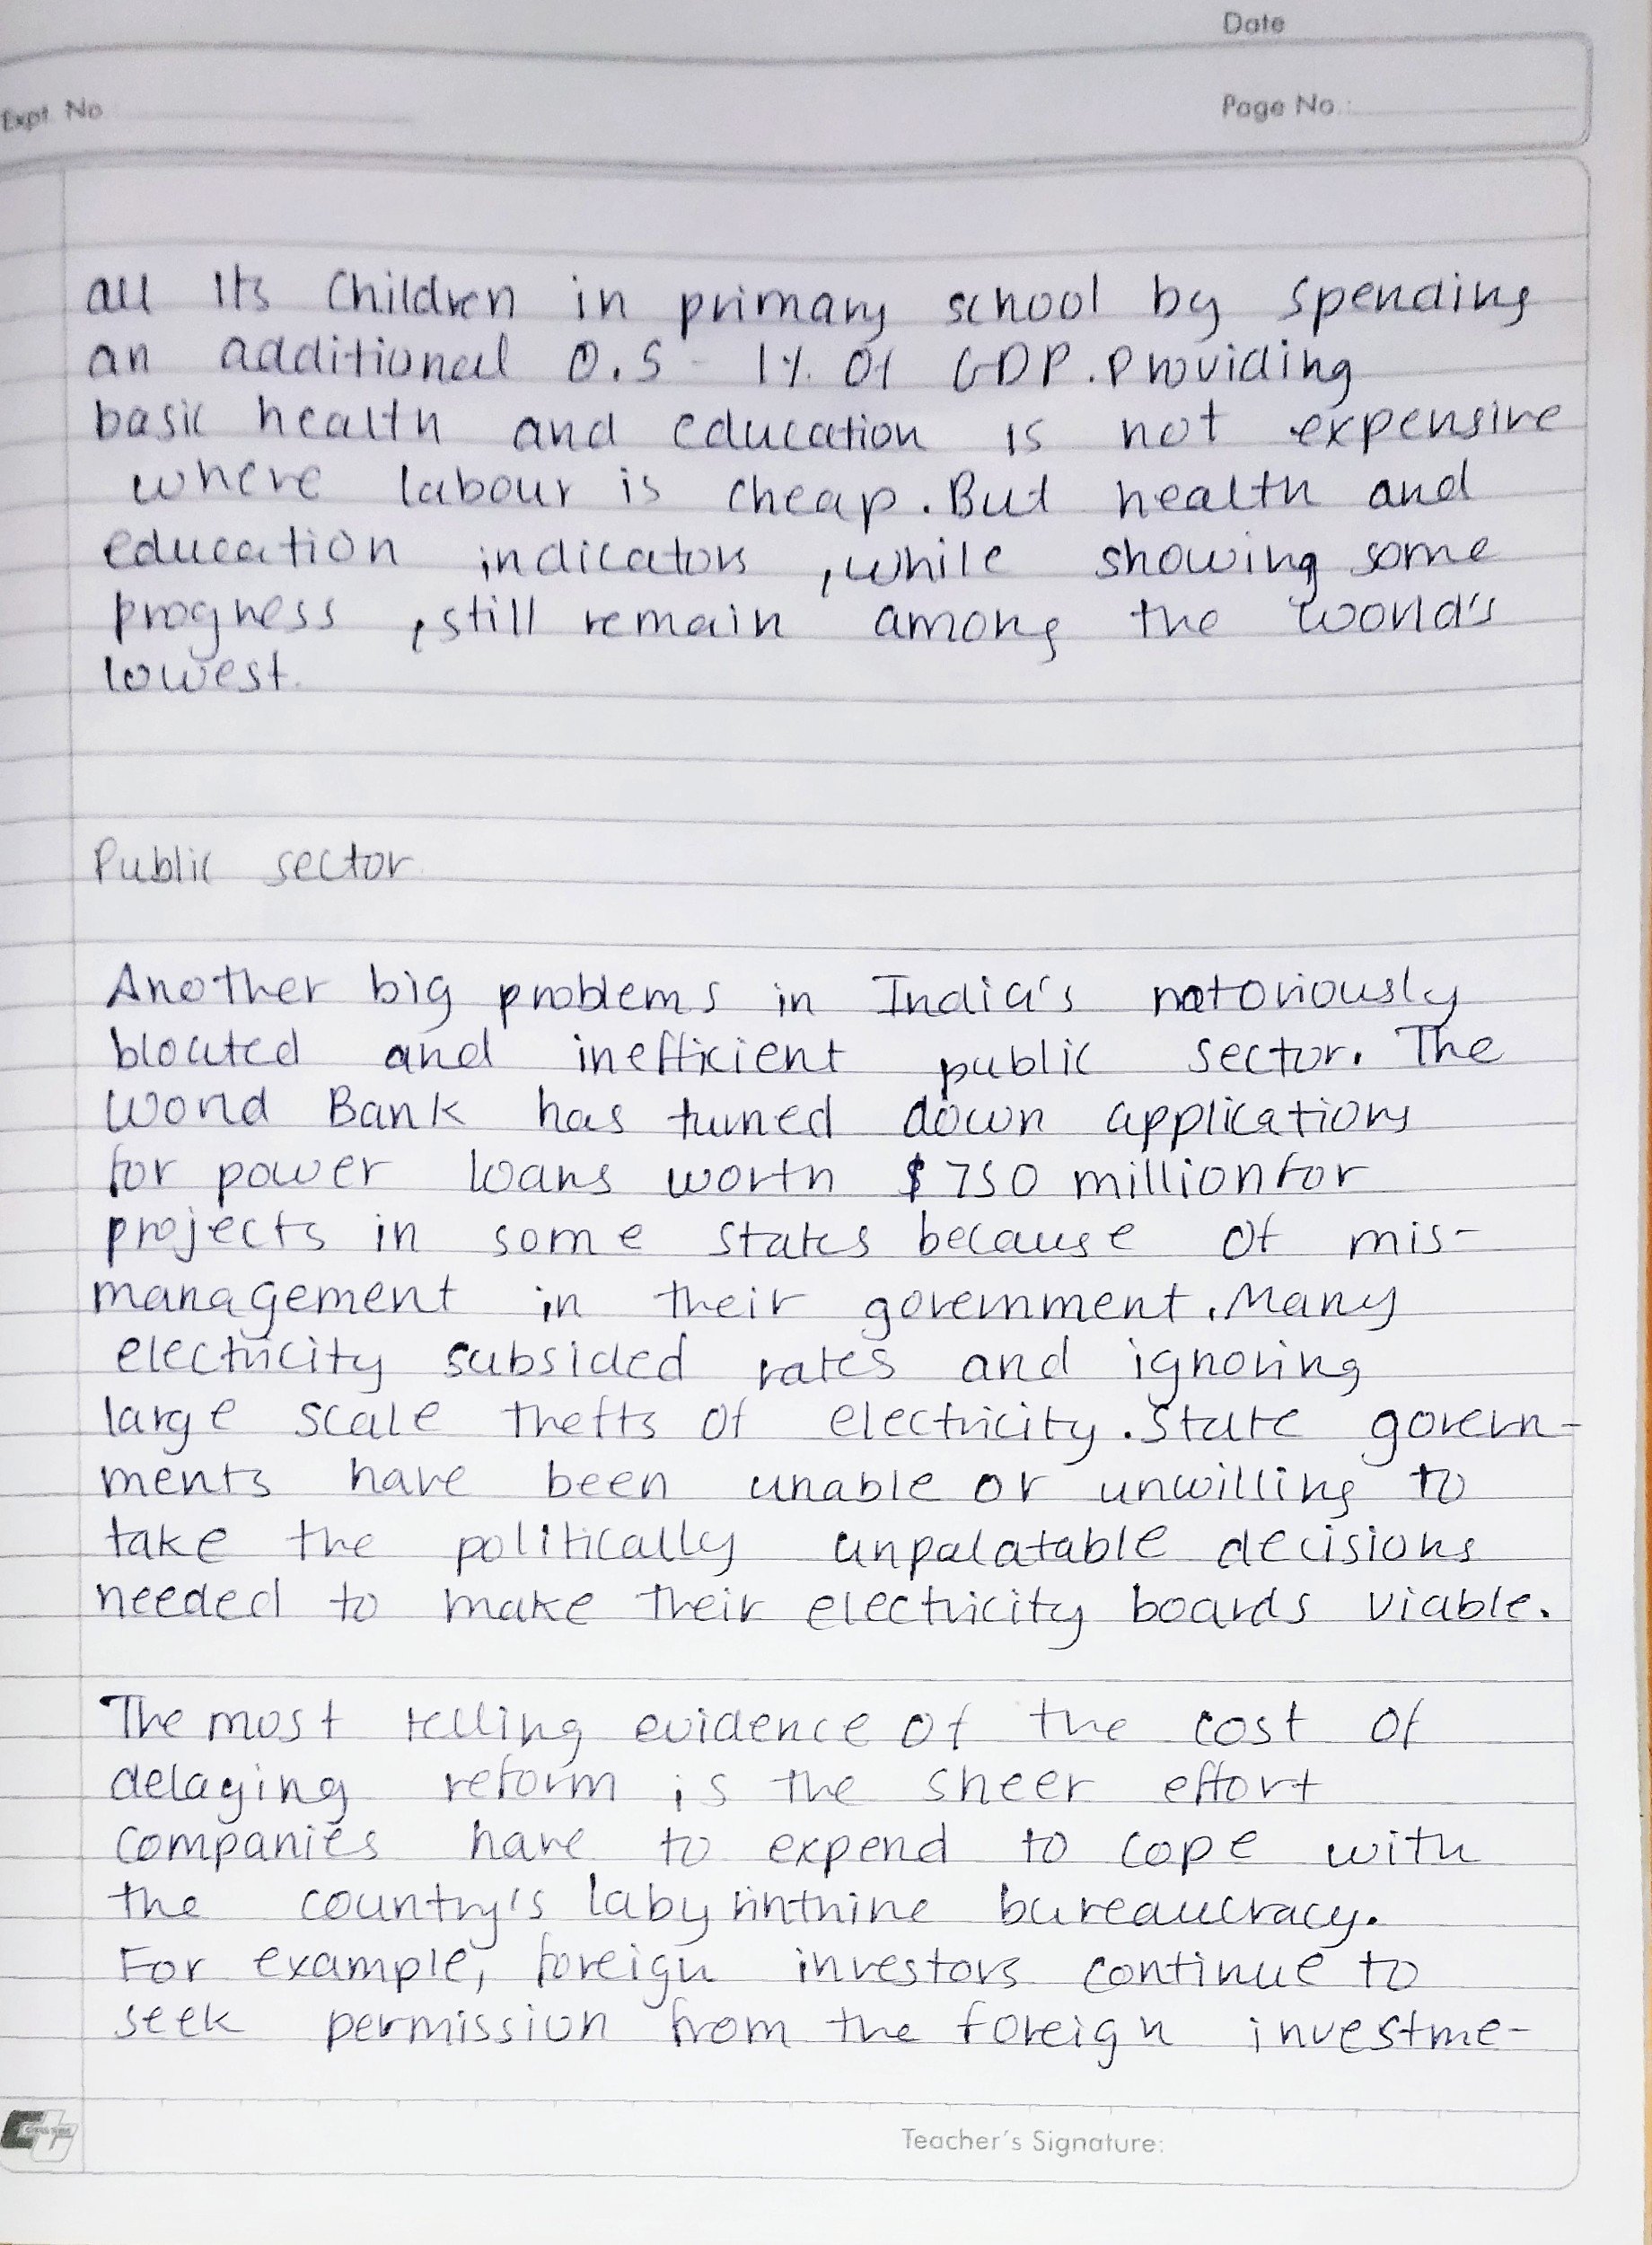 Date
Expt. No
Page No.:
all Its Children in primary school by spending
an additional 0.5 - 1% Of GDP. Providing
basic health and education is not expensive
where labour is cheap. But health and
education indicators , while showing some
progress , still remain among the world's
lowest.
Public sector
Another big problems in India's notoriously
bloated and inefficient public sector. The
World Bank has turned down applications
for power loans worth $ 750 million for
projects in some states because of mis-
management in their government. Many
electricity subsided rates and ignoring
large scale thefts of electricity. State govern-
ments have been unable or unwilling to
take the politically unpalatable decisions
needed to make their electricity boards viable.
The most telling evidence of the cost of
delaying reform is the sheer effort
companies have to expend to cope with
the country's labyrinthine bureaucracy.
For example, foreign investors continue to
seek permission from the foreign investme-
Teacher's Signature: